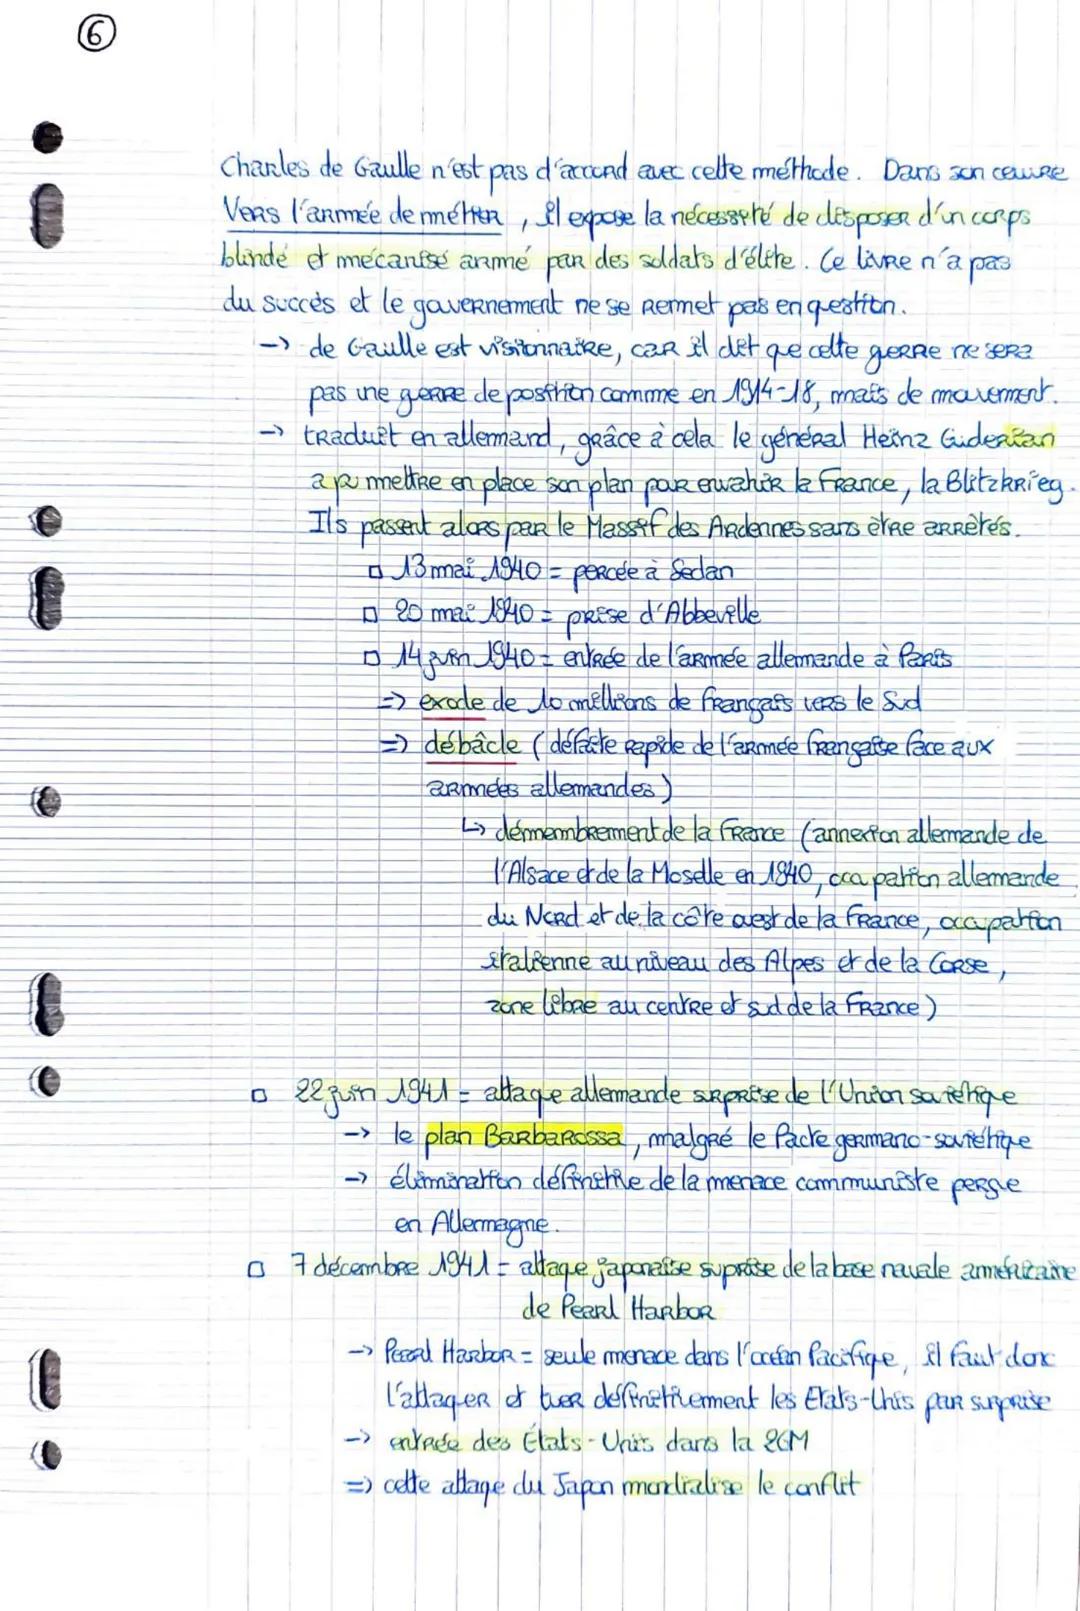 6
Charles de Gaulle n'est pas d'accord avec cette méthode. Dans son œuvre
Vers l'armée de métier, il expose la nécessité de disposer d'un corps
blindé et mécanisé armé par des soldats d'élite. Ce livre n'a pas
du succès et le gouvernement ne se remet pas en question.
-> de Gaulle est visionnaire, car il dit que cette gerre ne sera
pas une gerre de position comme en 1914-18, mais de mouvement.
-> traduit en allemand, grâce à cela le général Heinz Guderian
a pu mettre en place son plan pour envahir la France, la Blitzkrieg.
Ils passent alors par le Massif des Ardennes sans être arrêtés.
□ 13 mai 1940 = percée à Sedan
□ 20 mai 1940 = prise d'Abbeville
□ 14 juin 1940 = entrée de l'armée allemande à Paris
=> exode de 10 millions de français vers le Sud
=> débâcle (défaite rapide de l'armée française face aux
armées allemandes)
↳ démembrement de la France (annexion allemande de
l'Alsace et de la Moselle en 1940, occupation allemande
du Nord et de la côte ouest de la France, occupation
italienne au niveau des Alpes et de la Corse,
zone libre au centre et sud de la France)
□ 22 juin 1941 = attaque allemande surprise de l'Union soviétique
-> le plan Barbarossa, malgré le Pacte germano-soviétique
-> élimination définitive de la menace communiste perçue
en Allemagne.
□ 7 décembre 1941 = attaque japonaise suprise de la base navale américaine
de Pearl Harbor
-> Pearl Harbor = seule menace dans l'océan Pacifique, il faut donc
l'attaquer et tuer définitivement les Etats-Unis par surprise
-> entrée des États-Unis dans la 2GM
=> cette attaque du Japon mondialise le conflit